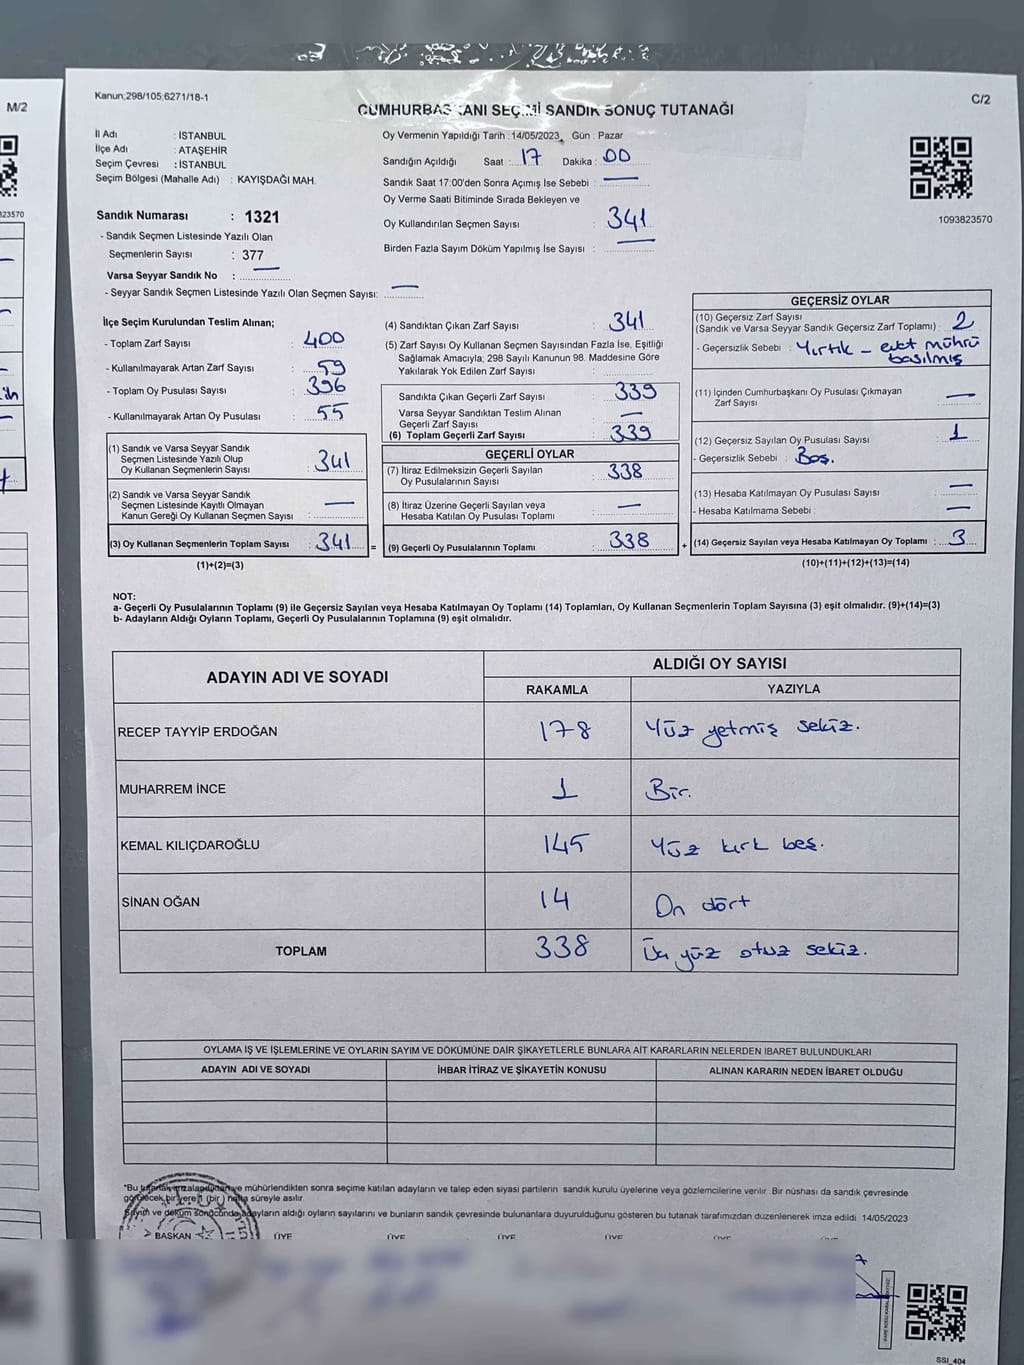 M/2
Kanun;298/105;6271/18-1
C/2
CUMHURBAŞKANI SEÇİMİ SANDIK SONUÇ TUTANAĞI
İl Adı : İSTANBUL
İlçe Adı : ATAŞEHİR
Seçim Çevresi : İSTANBUL
Seçim Bölgesi (Mahalle Adı) : KAYIŞDAĞI MAH.
Oy Vermenin Yapıldığı Tarih : 14/05/2023 Gün : Pazar
Sandığın Açıldığı Saat : 17 Dakika : 00
Sandık Saat 17:00'den Sonra Açımış İse Sebebi : —
Oy Verme Saati Bitiminde Sırada Bekleyen ve
Oy Kullandırılan Seçmen Sayısı : 341
Birden Fazla Sayım Döküm Yapılmış İse Sayısı : —
1093823570
823570
Sandık Numarası : 1321
- Sandık Seçmen Listesinde Yazılı Olan
Seçmenlerin Sayısı : 377
Varsa Seyyar Sandık No : —
- Seyyar Sandık Seçmen Listesinde Yazılı Olan Seçmen Sayısı: —
İlçe Seçim Kurulundan Teslim Alınan;
- Toplam Zarf Sayısı : 400
- Kullanılmayarak Artan Zarf Sayısı : 59
- Toplam Oy Pusulası Sayısı : 396
- Kullanılmayarak Artan Oy Pusulası : 55
(1) Sandık ve Varsa Seyyar Sandık
Seçmen Listesinde Yazılı Olup
Oy Kullanan Seçmenlerin Sayısı : 341
(2) Sandık ve Varsa Seyyar Sandık
Seçmen Listesinde Kayıtlı Olmayan
Kanun Gereği Oy Kullanan Seçmen Sayısı : —
(3) Oy Kullanan Seçmenlerin Toplam Sayısı : 341 =
(1)+(2)=(3)
(4) Sandıktan Çıkan Zarf Sayısı : 341
(5) Zarf Sayısı Oy Kullanan Seçmen Sayısından Fazla İse, Eşitliği
Sağlamak Amacıyla; 298 Sayılı Kanunun 98. Maddesine Göre
Yakılarak Yok Edilen Zarf Sayısı :
Sandıkta Çıkan Geçerli Zarf Sayısı : 339
Varsa Seyyar Sandıktan Teslim Alınan
Geçerli Zarf Sayısı : —
(6) Toplam Geçerli Zarf Sayısı : 339
GEÇERLİ OYLAR
(7) İtiraz Edilmeksizin Geçerli Sayılan
Oy Pusulalarının Sayısı : 338
(8) İtiraz Üzerine Geçerli Sayılan veya
Hesaba Katılan Oy Pusulası Toplamı : —
(9) Geçerli Oy Pusulalarının Toplamı : 338 +
GEÇERSİZ OYLAR
(10) Geçersiz Zarf Sayısı
(Sandık ve Varsa Seyyar Sandık Geçersiz Zarf Toplamı) : 2
- Geçersizlik Sebebi : Yırtık – evet mührü
basılmış
(11) İçinden Cumhurbaşkanı Oy Pusulası Çıkmayan
Zarf Sayısı : —
(12) Geçersiz Sayılan Oy Pusulası Sayısı : 1
- Geçersizlik Sebebi : Boş.
(13) Hesaba Katılmayan Oy Pusulası Sayısı : —
- Hesaba Katılmama Sebebi : —
(14) Geçersiz Sayılan veya Hesaba Katılmayan Oy Toplamı : 3
(10)+(11)+(12)+(13)=(14)
NOT:
a- Geçerli Oy Pusulalarının Toplamı (9) ile Geçersiz Sayılan veya Hesaba Katılmayan Oy Toplamı (14) Toplamları, Oy Kullanan Seçmenlerin Toplam Sayısına (3) eşit olmalıdır. (9)+(14)=(3)
b- Adayların Aldığı Oyların Toplamı, Geçerli Oy Pusulalarının Toplamına (9) eşit olmalıdır.
ADAYIN ADI VE SOYADI
ALDIĞI OY SAYISI
RAKAMLA YAZIYLA
RECEP TAYYİP ERDOĞAN 178 Yüz yetmiş sekiz.
MUHARREM İNCE 1 Bir.
KEMAL KILIÇDAROĞLU 145 Yüz kırk beş.
SİNAN OĞAN 14 On dört
TOPLAM 338 Üç yüz otuz sekiz.
OYLAMA İŞ VE İŞLEMLERİNE VE OYLARIN SAYIM VE DÖKÜMÜNE DAİR ŞİKAYETLERLE BUNLARA AİT KARARLARIN NELERDEN İBARET BULUNDUKLARI
ADAYIN ADI VE SOYADI İHBAR İTİRAZ VE ŞİKAYETİN KONUSU ALINAN KARARIN NEDEN İBARET OLDUĞU
*Bu tutanak imzalandıktan ve mühürlendikten sonra seçime katılan adayların ve talep eden siyasi partilerin sandık kurulu üyelerine veya gözlemcilerine verilir. Bir nüshası da sandık çevresinde
görülecek bir yere 1 (bir) hafta süreyle asılır.
Sayım ve döküm sonucunda adayların aldığı oyların sayılarını ve bunların sandık çevresinde bulunanlara duyurulduğunu gösteren bu tutanak tarafımızdan düzenlenerek imza edildi. 14/05/2023
BAŞKAN ÜYE ÜYE ÜYE ÜYE
SSI_404